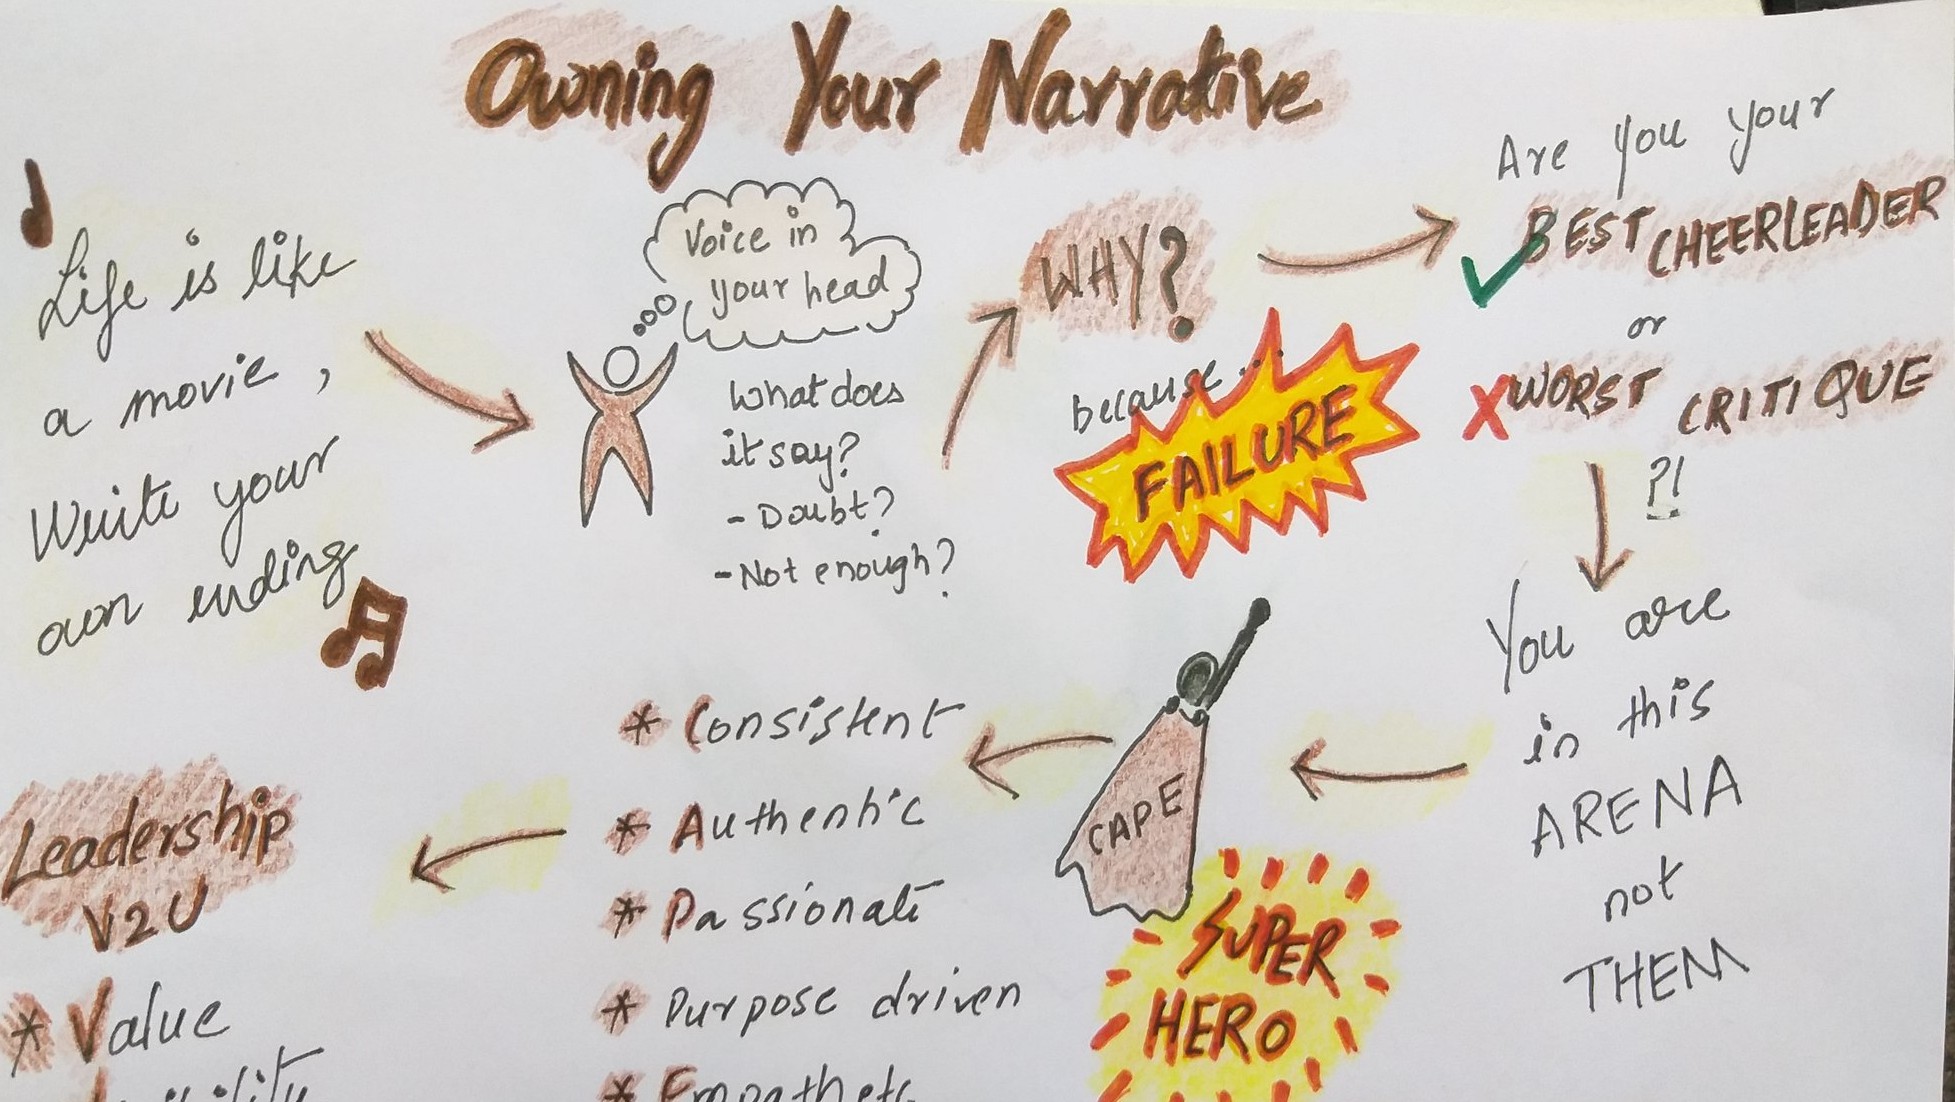 Owning Your Narrative
Life is like
a movie,
Write your
own ending
Voice in
your head
What does
it say?
- Doubt?
- Not enough?
WHY?
because...
FAILURE
Are you your
BEST CHEERLEADER
or
WORST CRITIQUE
?!
You are
in this
ARENA
not
THEM
CAPE
SUPER
HERO
* Consistent
* Authentic
* Passionate
* Purpose driven
Leadership
V2U
* Value